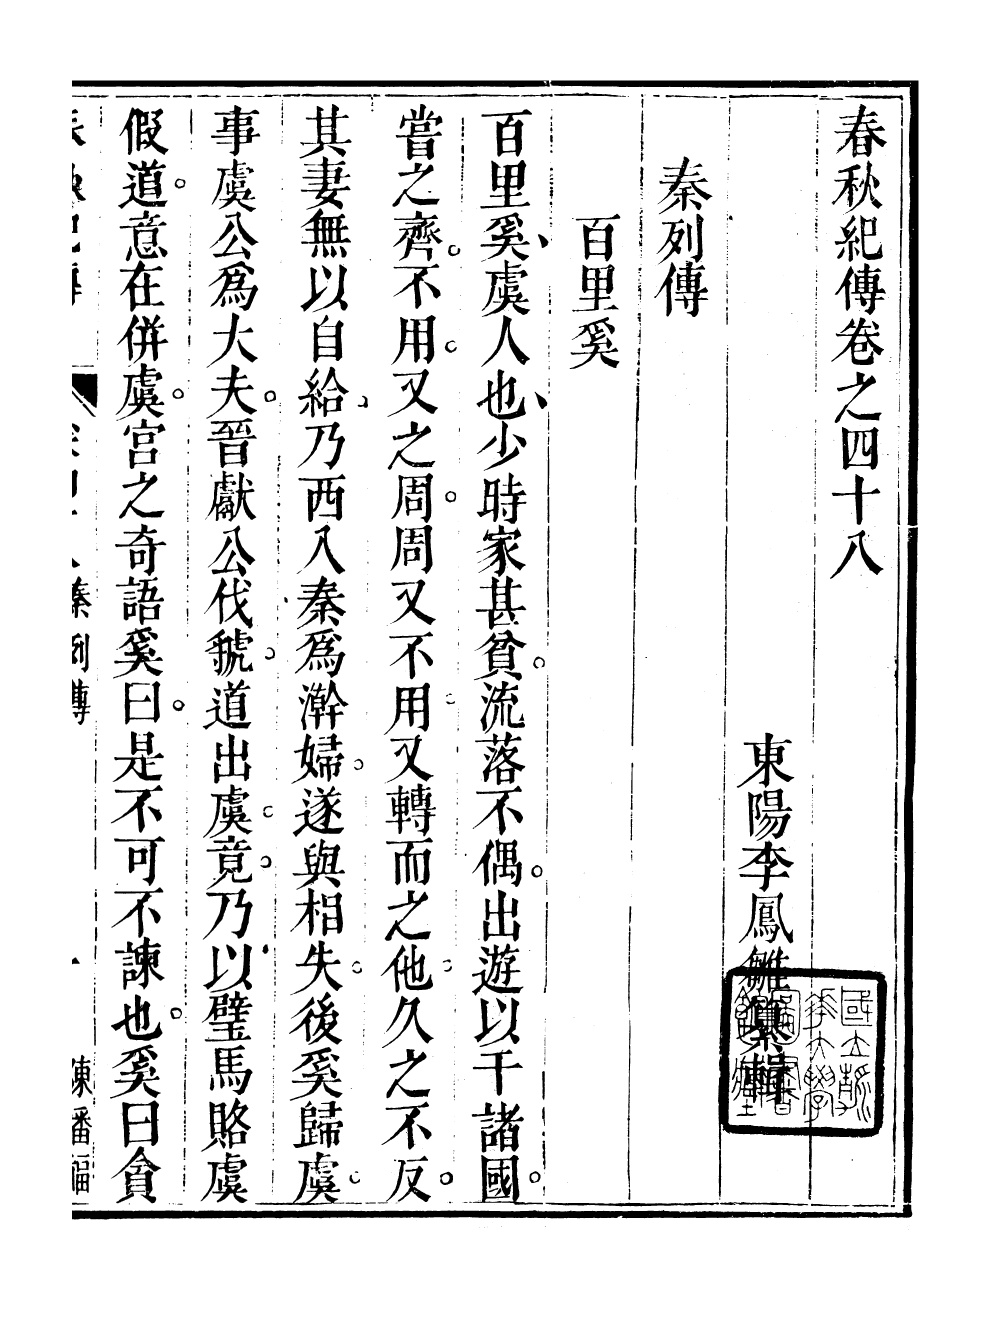 春秋紀傳卷之四十八
東陽李鳳雛纂輯
秦列傳
百里奚
百里奚、虞人也、少時家甚貧。流落不偶。出遊以干諸國。
嘗之齊。不用。又之周。周又不用。又轉而之他。久之不反。
其妻無以自給。乃西入秦爲澣婦。遂與相失。後奚歸虞。
事虞公爲大夫。晉獻公伐虢。道出虞。竟。乃以璧馬賂虞
假道。意在併虞。宮之奇語奚曰。是不可不諫也。奚曰貪
秦列傳
陳番福
國立清華大學圖書館藏